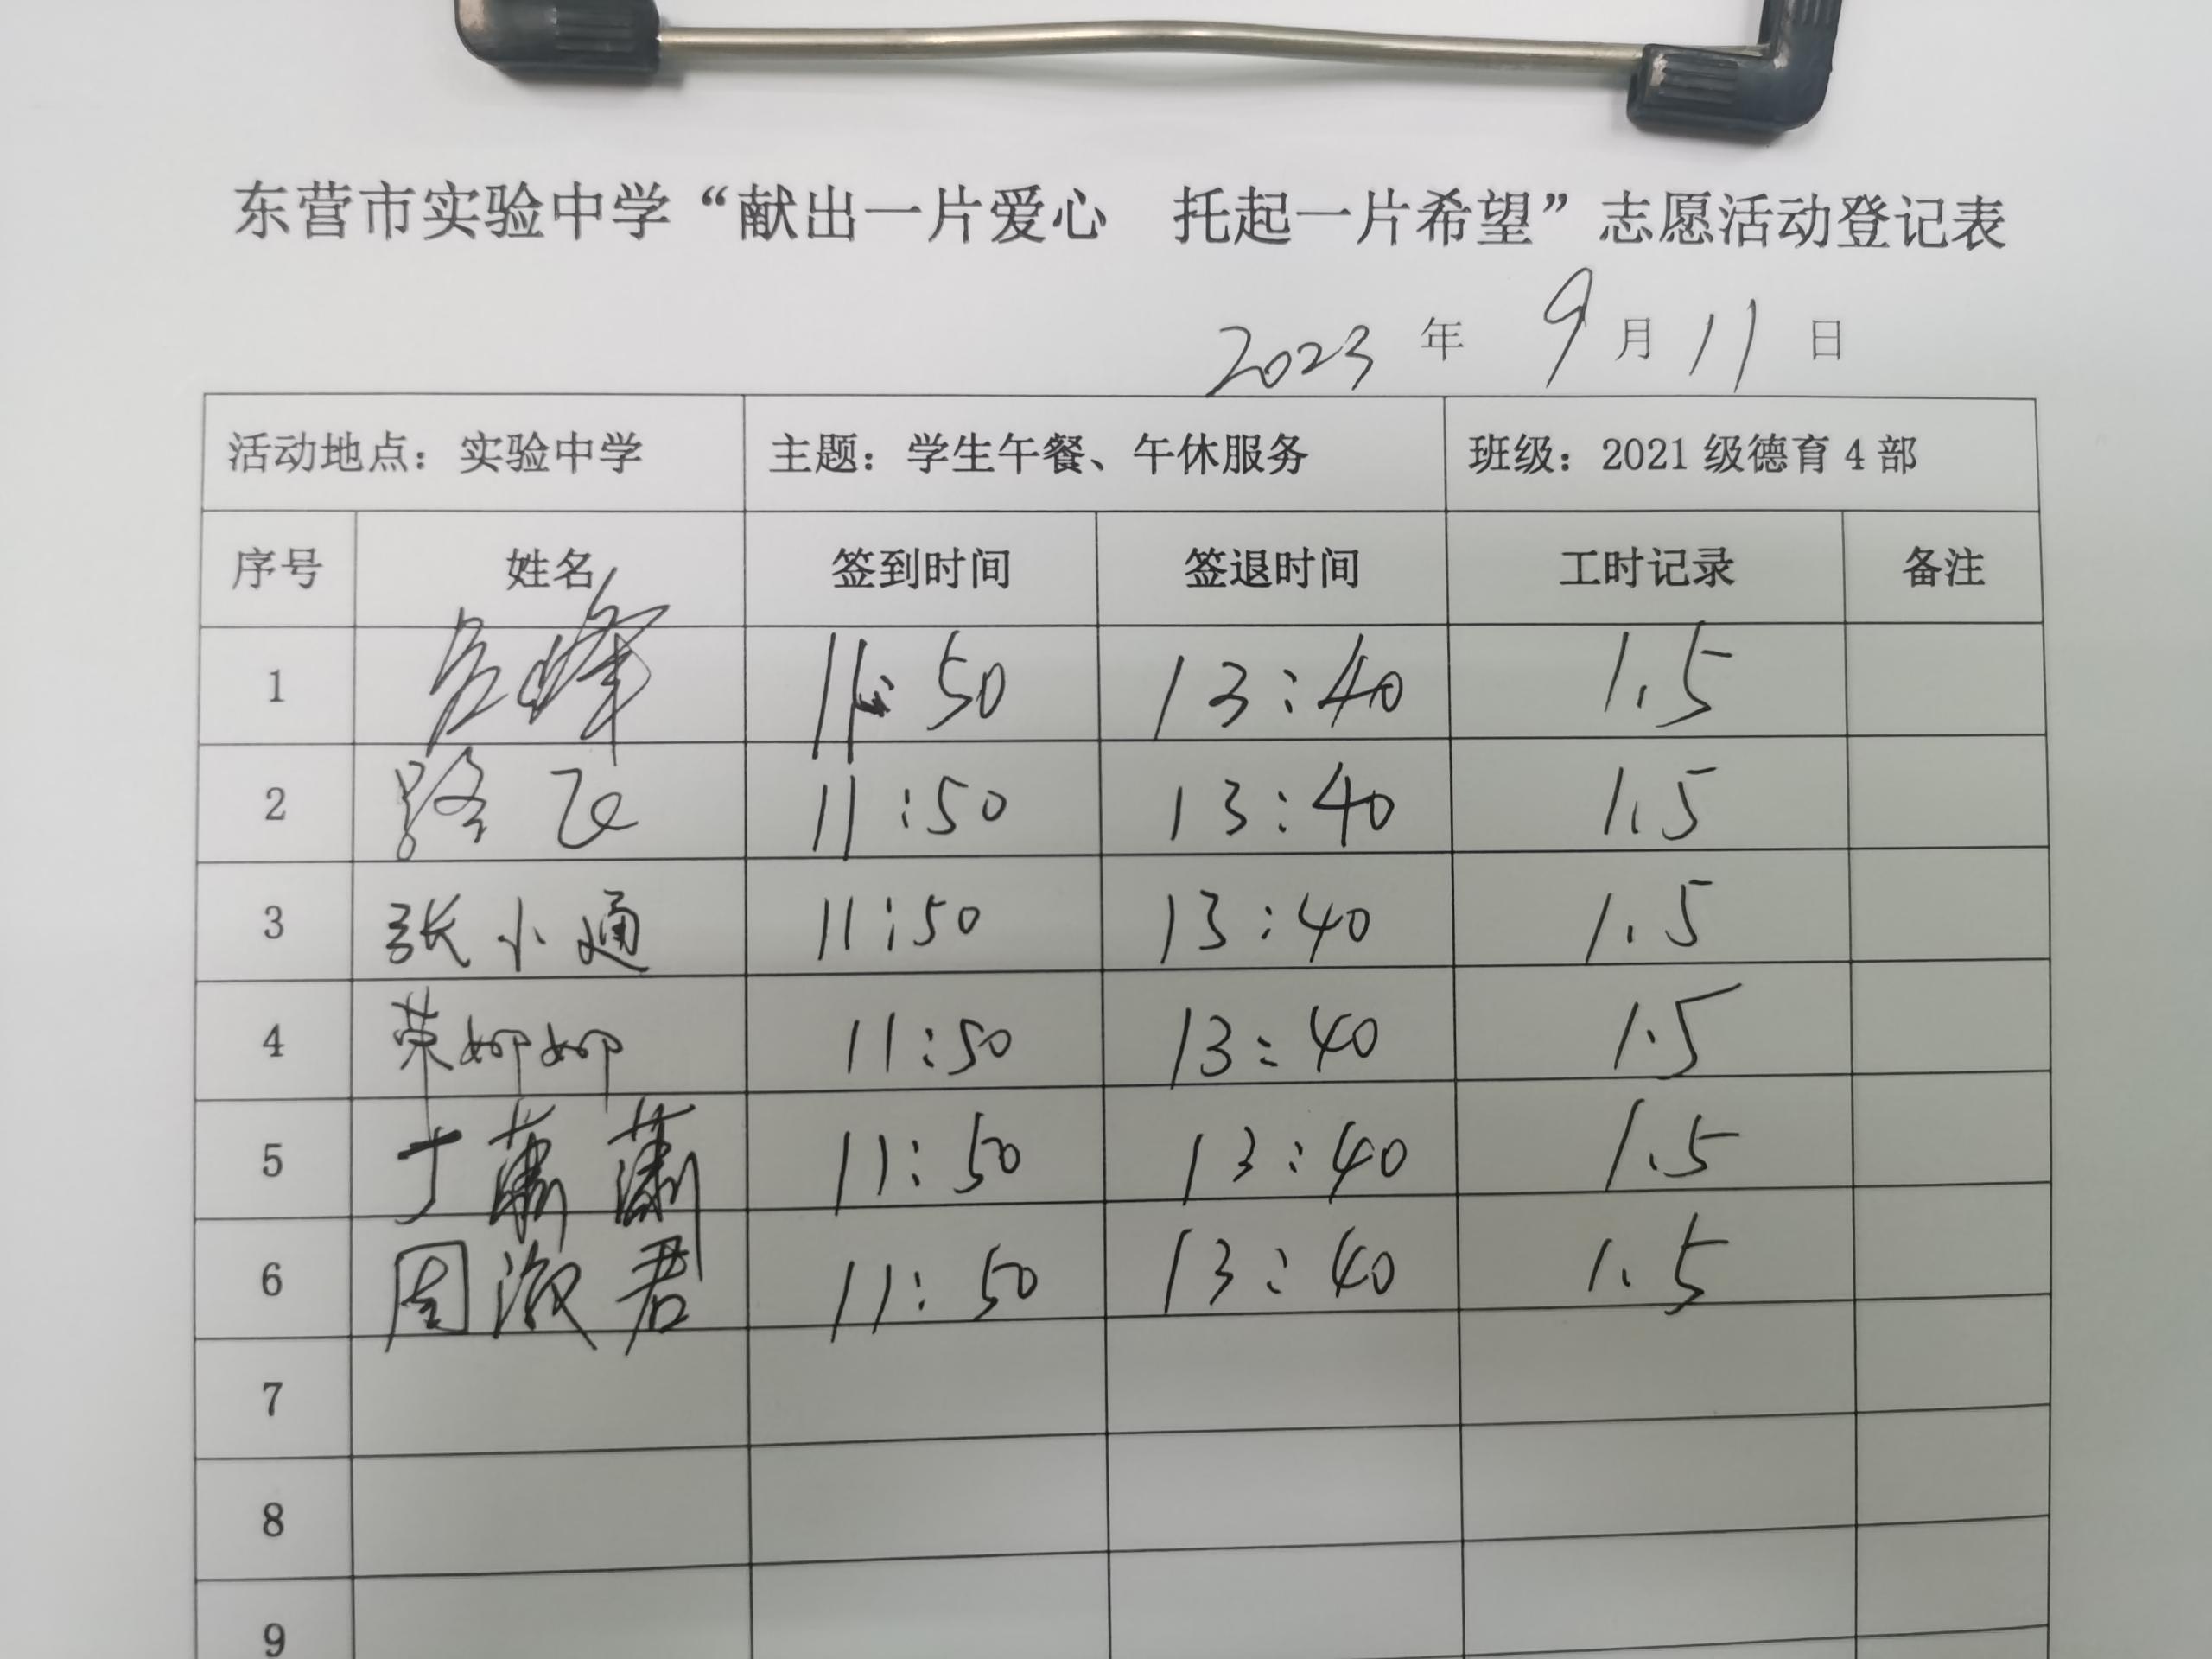 东营市实验中学“献出一片爱心　托起一片希望”志愿活动登记表
2023 年 9 月 11 日
活动地点：实验中学 主题：学生午餐、午休服务 班级：2021级德育4部
序号 姓名 签到时间 签退时间 工时记录 备注
1 11:50 13:40 1.5
2 路飞 11:50 13:40 1.5
3 张小通 11:50 13:40 1.5
4 荣娜娜 11:50 13:40 1.5
5 丁潇潇 11:50 13:40 1.5
6 周淑君 11:50 13:40 1.5
7
8
9